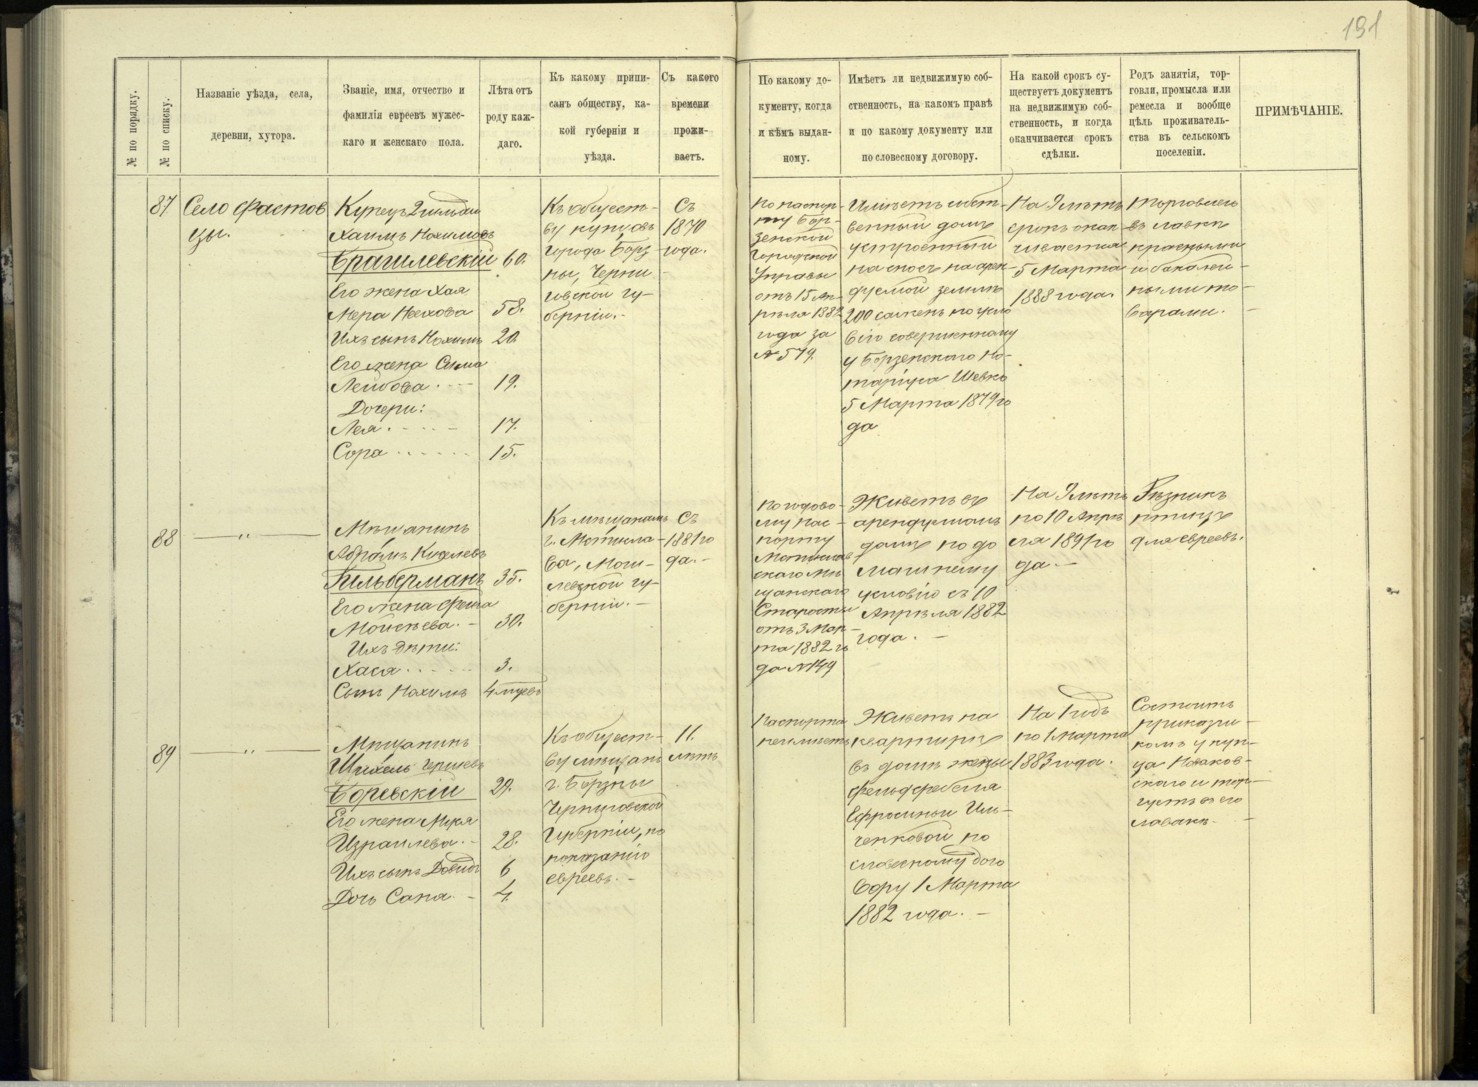 191
№ по порядку.
№ по списку.
Названіе уѣзда, села,
деревни, хутора.
Званіе, имя, отчество и
фамилія евреевъ мужес-
каго и женскаго пола.
Лѣта отъ
роду каж-
даго.
Къ какому припи-
санъ обществу, ка-
кой губерніи и
уѣзда.
Съ какого
времени
прожи-
ваетъ.
По какому до-
кументу, когда
и кѣмъ выдан-
ному.
Имѣетъ ли недвижимую соб-
ственность, на какомъ правѣ
и по какому документу или
по словесному договору.
На какой срокъ су-
ществуетъ документъ
на недвижимую соб-
ственность, и когда
оканчивается срокъ
сдѣлки.
Родъ занятія, тор-
говли, промысла или
ремесла и вообще
цѣль проживатель-
ства въ сельскомъ
поселеніи.
ПРИМѢЧАНІЕ.
87
Село Фастов
цы.
Купецъ 2 гильдіи
Хаимъ Нохимовъ
Брагилевскій 60.
Его жена Хая
Мера 58.
Ихъ сынъ Нохимъ 20.
Его жена Сима
Лейбова 19.
Дочери:
Лея 17.
Сора 15.
Къ общест-
ву купцовъ
города Борз
ны, Черни
говской гу-
берніи.
Съ
1870
года.
По паспор
ту Бор-
зенской
Городской
Управы
отъ 15 Ап-
рѣля 1882
года за
№ 579.
Имѣетъ собст-
венный домъ
устроенный
на сносъ на арен-
дуемой землѣ
200 сажень по усло
вію совершенному
у Борзенского Но-
таріуса Шевко
5 Марта 1879 го
да
На 9 лѣтъ
срокъ окан
чивается
5 Марта
1888 года.
Торговлею
въ лавкѣ
красными
и бакалей-
ными то-
варами.
88
— „ —
Мѣщанинъ
Абрамъ Юделевъ
Гильберманъ 35.
Его жена Фейга
Моисѣева. 30.
Ихъ дѣти:
Хася 3.
Сынъ Нохимъ 4 мѣсяцъ
Къ мѣщанамъ
г. Мстисла-
ва, Моги-
левской гу-
берніи.
Съ
1881 го
да.
По годово-
му пас-
порту
Мстислав
скаго Мѣ
щанскаго
Старосты
отъ 3 Мар-
та 1882 го
да № 149
Живетъ въ
арендуемомъ
домѣ по до
машнему
условію съ 10
Апрѣля 1882
года.
На 9 лѣтъ
по 10 Апрѣ
ля 1891 го
да.
Рѣзникъ
птицъ
для евреевъ.
89
— „ —
Мѣщанинъ
Боревскій 29.
Его жена Меря
Израилева. 28.
Ихъ сынъ Довидъ 6
Дочь Сапа. 4.
Къ общест-
ву мѣщанъ
г. Борзны
Черниговской
Губерніи, по
показанію
евреевъ.
11.
лѣтъ
Паспорта
неимѣетъ
Живетъ на
квартирѣ
въ домѣ жены
фельдфебеля
Ефросиньи Иль-
ченковой по
словесному дого
вору 1 Марта
1882 года.
На 1 годъ
по 1 Марта
1883 года.
Состоитъ
приказчи-
комъ у куп-
ца Новаков-
скаго и тор-
гуетъ въ его
лавкѣ.